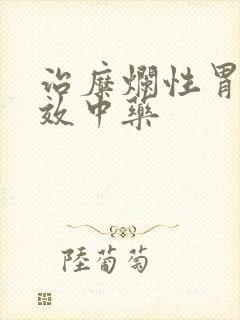 治糜爛性胃
效中藥
陸葡萄